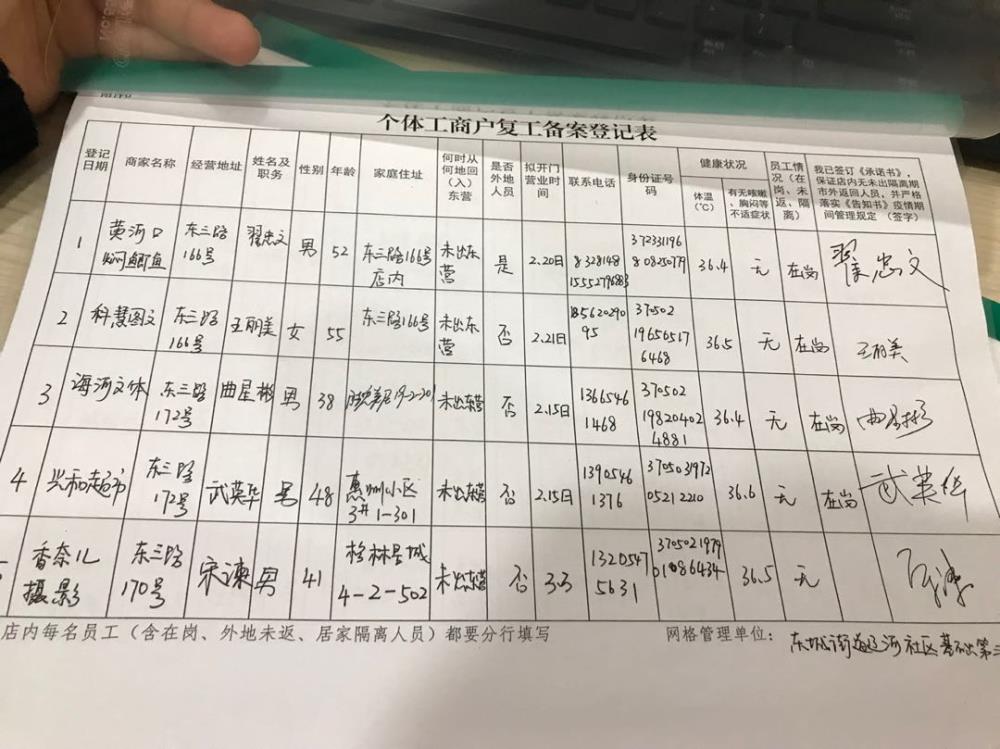 个体工商户复工备案登记表
登记日期 商家名称 经营地址 姓名及职务 性别 年龄 家庭住址 何时从何地回（入）东营 是否外地人员 拟开门营业时间 联系电话 身份证号码 健康状况 体温（℃） 有无咳嗽、胸闷等不适症状 员工情况（在岗、未返、隔离） 我已签订《承诺书》，保证店内无未出隔离期市外返回人员，并严格落实《告知书》疫情期间管理规定（签字）
1 黄河口焖鲫鱼 东三路166号 翟忠文 男 52 东三路166号店内 未出东营 是 2.20日 8328148 15552796883 36.4 无 在岗 翟忠文
2 科慧图文 东三路166号 王丽美 女 55 东三路166号 未出东营 否 2.21日 370502196505176468 36.5 无 在岗 王丽美
3 海河文体 东三路172号 曲星彬 男 38 未出东营 否 2.15日 13665461468 370502198204024881 36.4 无 在岗 曲星彬
4 兴和超市 东三路172号 武英华 男 48 惠州小区3#1-301 未出东营 否 2.15日 13905461376 370503197205212210 36.6 无 在岗 武英华
香奈儿摄影 东三路170号 宋涛 男 41 格林星城4-2-502 未出东营 否 3.3 13205475631 36.5 无
店内每名员工（含在岗、外地未返、居家隔离人员）都要分行填写 网格管理单位： 东城街道辽河社区基础第